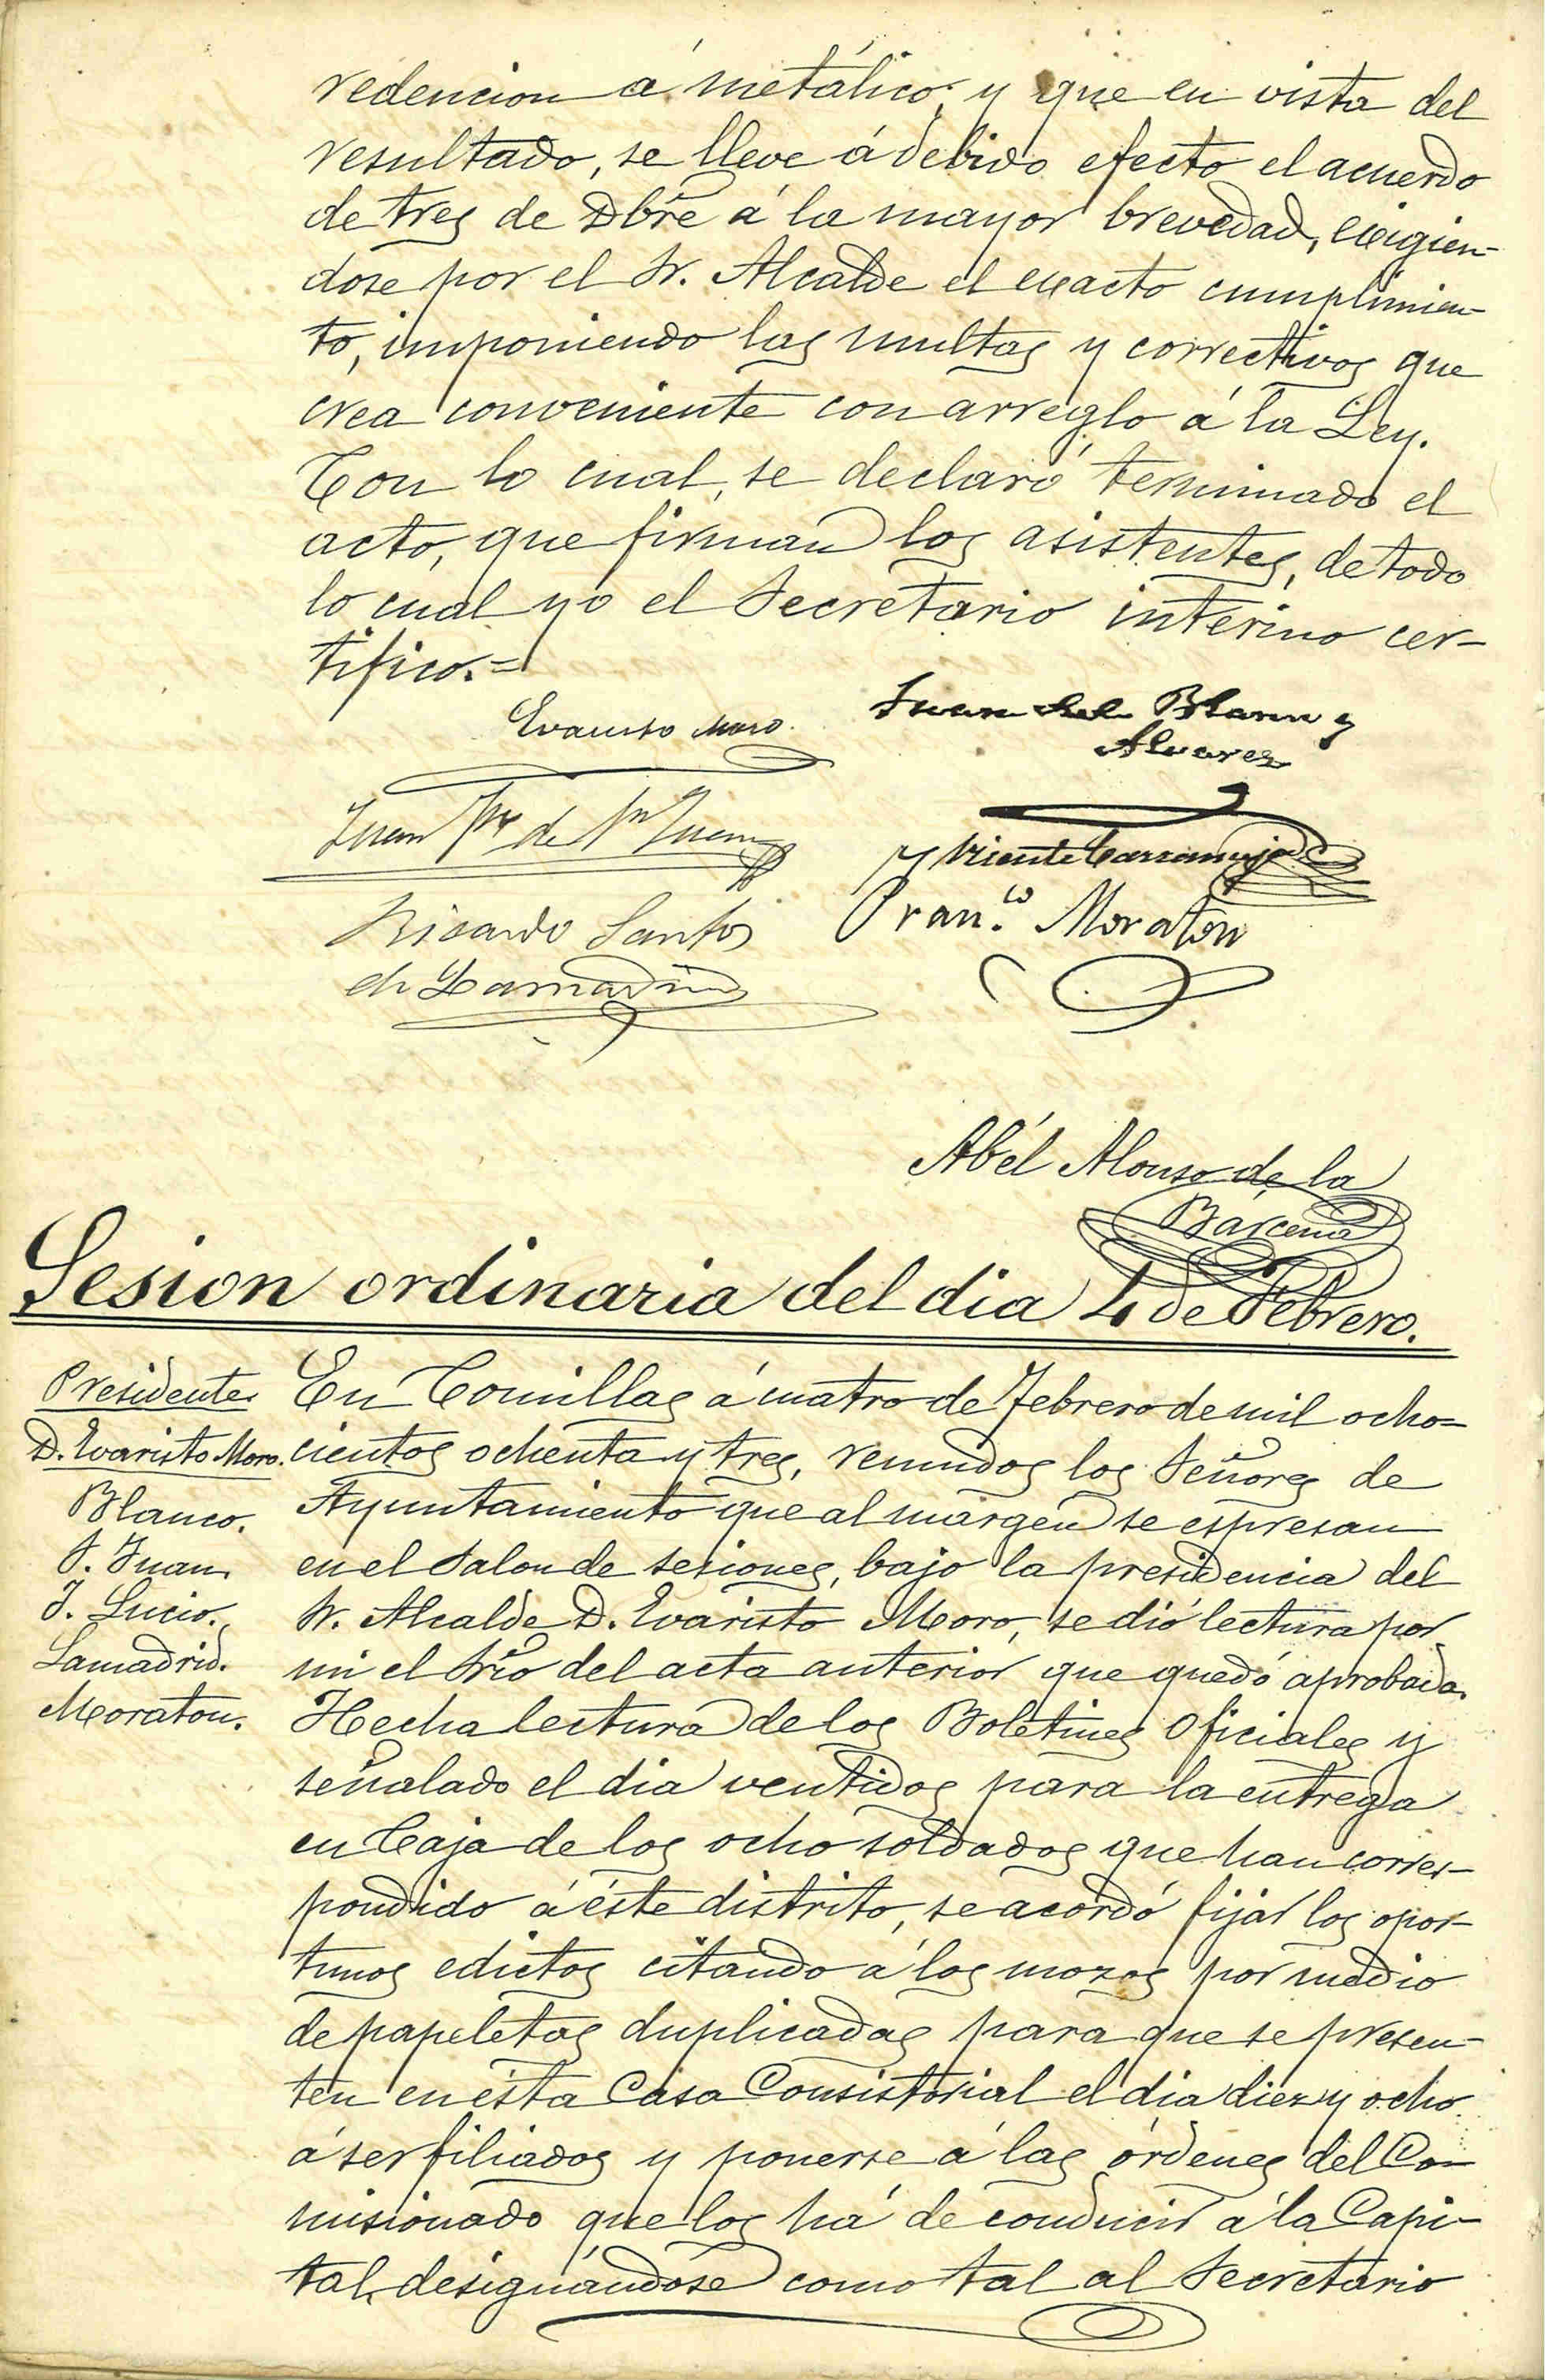 redencion á metálico, y que en vista del
resultado, se lleve á debido efecto el acuerdo
de tres de Dbre á la mayor brevedad, exigien-
dose por el Sr. Alcalde el exacto cumplimien-
to, imponiendo las multas y correctivos que
crea conveniente con arreglo á la Ley.
Con lo cual, se declaró terminado el
acto, que firman los asistentes, de todo
lo cual yo el Secretario interino cer-
tifico.=
Evaristo Moro.
Juan del Blanco y
Alvarez
Juan de Sn Juan
Vicente
Ricardo Santos
de Lamadrid
Fran.co Moraton
Abél Alonso de la
Barcena
Sesion ordinaria del dia 4 de Febrero.
Presidente
D. Evaristo Moro.
Blanco.
S. Juan.
J. Lucio.
Lamadrid.
Moraton.
En Comillas á cuatro de Febrero de mil ocho-
cientos ochenta y tres, reunidos los Señores de
Ayuntamiento que al márgen se espresan
en el Salon de sesiones, bajo la presidencia del
Sr. Alcalde D. Evaristo Moro, se dió lectura por
mi el Srio del acta anterior que quedó aprobada.
Hecha lectura de los Boletines Oficiales y
señalado el dia ventidos para la entrega
en Caja de los ocho soldados que han corres-
pondido á éste distrito, se acordó fijar los opor-
tunos edictos citando á los mozos por medio
de papeletas duplicadas para que se presen-
ten en ésta Casa Consistorial el dia diez y ocho
á ser filiados y ponerse á las órdenes del Co-
misionado que los há de conducir á la Capi-
tal, designándose como tal al Secretario